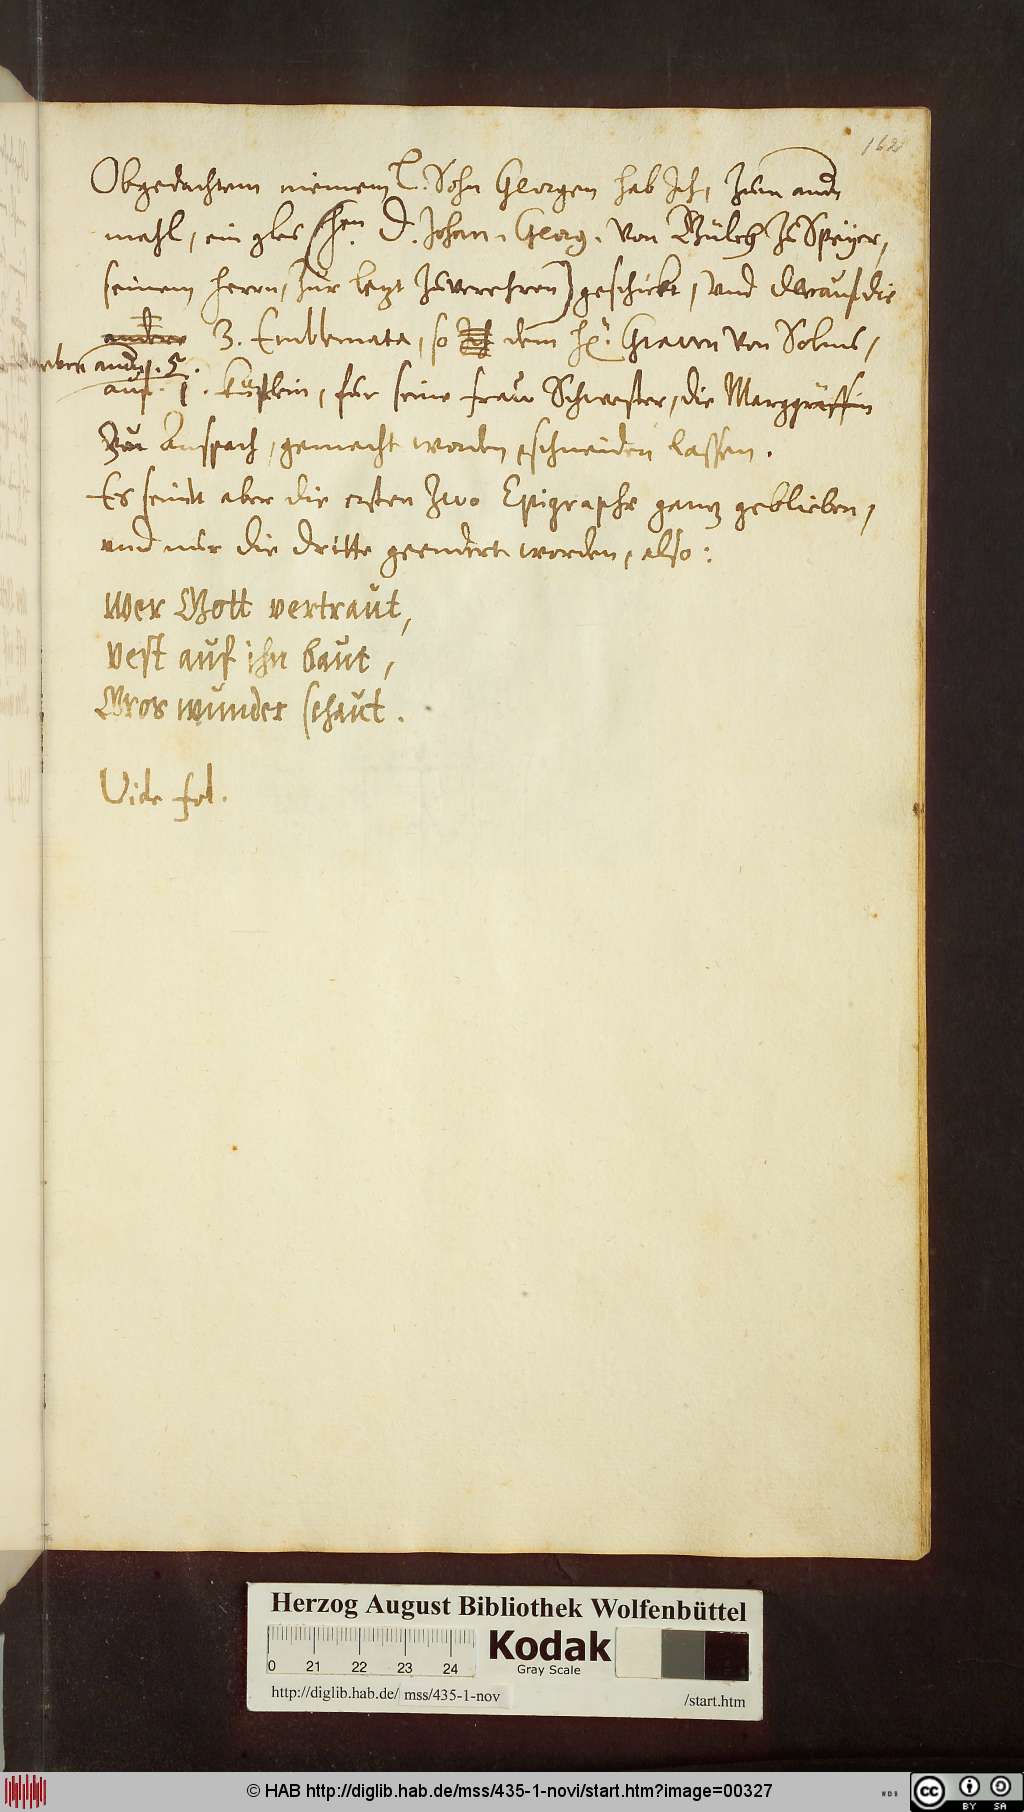 162
Obgedachtem meinem l. Sohn Georgen hab Ich, Zum andn
mahl, ein gles (hen. D. Johan. Georg. von Gülch Zu Speyer,
seinem herrn, zur letzt zuverehren) geschickt, vnd drauf die
andere 3. Emblemata, so dem h. Graven von Solms,
neben andn. 5.
auf. 1. küstlein, fur seine fraw Schwester, die Marggräffin
zu Anspach, gemacht worden, schneiden lassen.
Es seindt aber die ersten zwo Epigraphe gantz geblieben,
vnd nur die dritte geendert worden, also:
Wer Gott vertraut,
vest auf ihn baut,
Gros wunder schaut.
Vide fol.
Herzog August Bibliothek Wolfenbüttel
0 21 22 23 24
Kodak
Gray Scale
http://diglib.hab.de/ mss/435-1-nov /start.htm
© HAB http://diglib.hab.de/mss/435-1-novi/start.htm?image=00327
WDB
CC BY SA